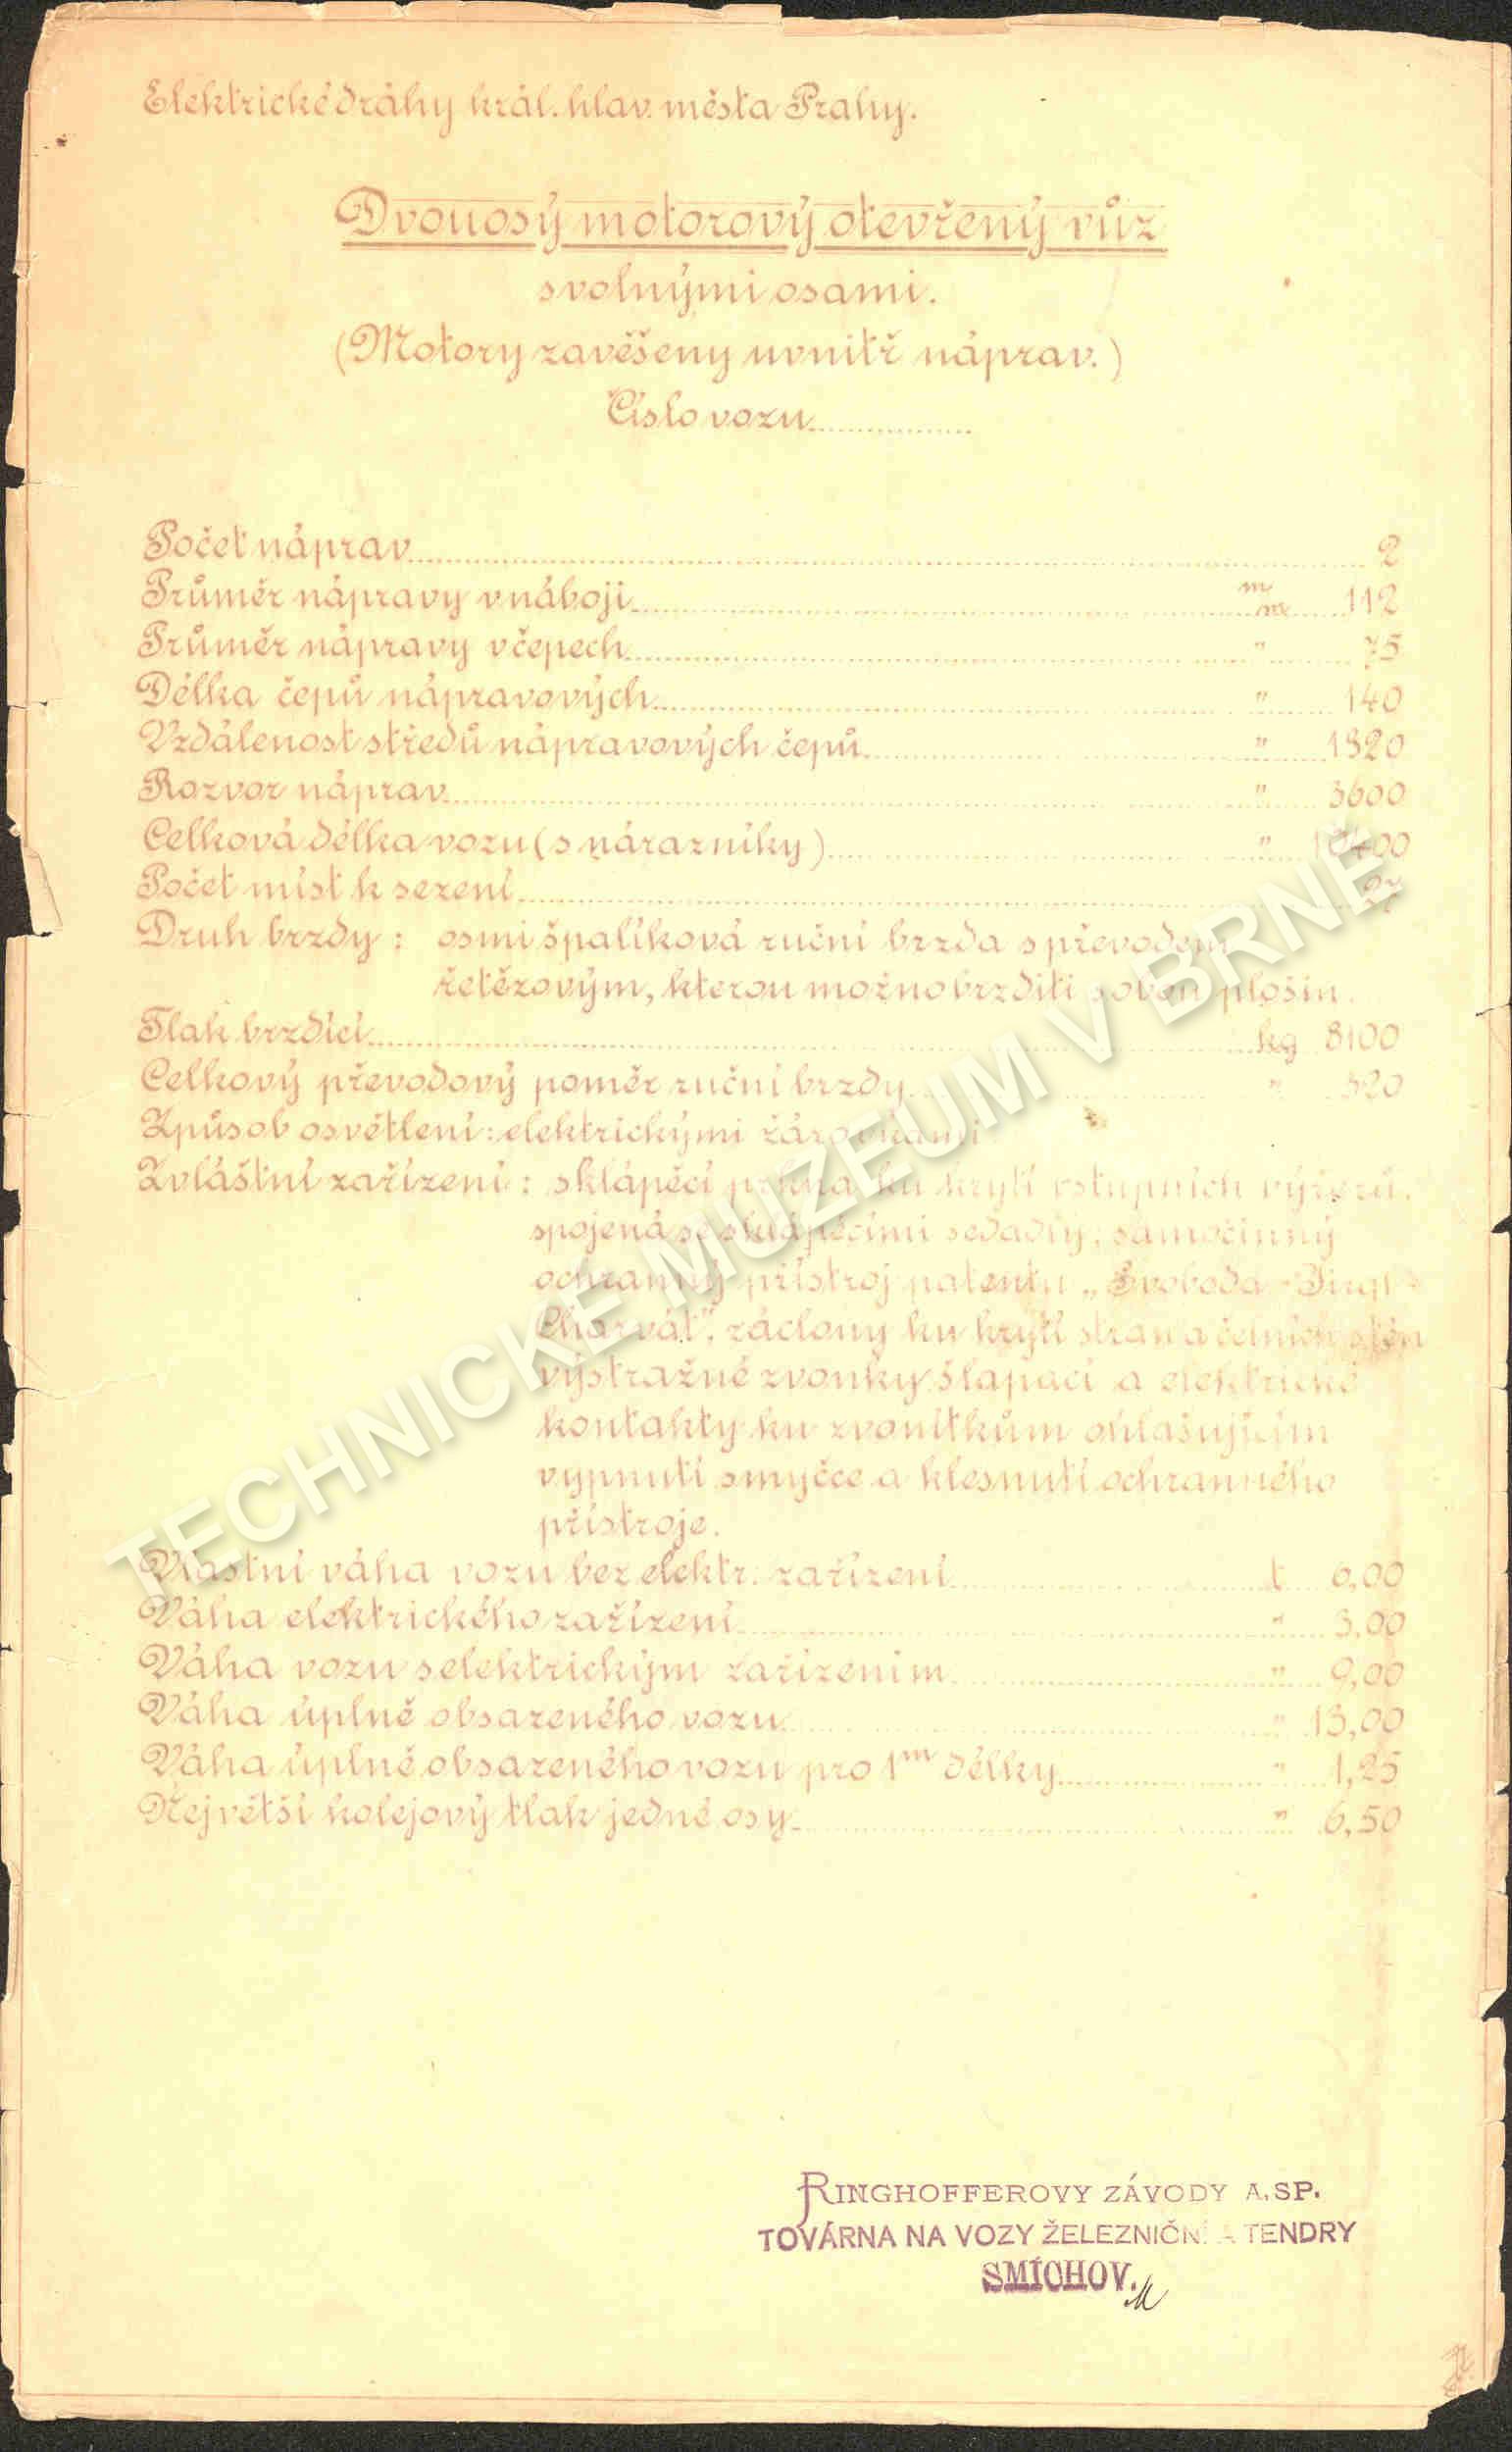 Elektrické dráhy král. hlav. města Prahy.
Dvouosý motorový otevřený vůz
s volnými osami.
(Motory zavěšeny uvnitř náprav.)
Číslo vozu
Počet náprav 2
Průměr nápravy v náboji m/m 112
Průměr nápravy v čepech " 75
Délka čepů nápravových " 140
Vzdálenost středů nápravových čepů " 1820
Rozvor náprav " 3600
Celková délka vozu (s nárazníky) " 10400
Počet míst k sezení 27
Druh brzdy: osmišpalíková ruční brzda s převodem
řetězovým, kterou možno brzditi s obou plošin.
Tlak brzdící kg 8100
Celkový převodový poměr ruční brzdy "
Způsob osvětlení: elektrickými žárovkami
Zvláštní zařízení: sklápěcí prkna ku krytí vstupních výřezů,
spojená se sklápěcími sedadly; samočinný
ochranný přístroj patentu „Svoboda-Jirgl-
Charvát", záclony ku krytí stran a čelních stěn
výstražné zvonky šlapací a elektrické
kontakty ku zvonítkům ohlašujícím
vypnutí smyčce a klesnutí ochranného
přístroje.
Vlastní váha vozu bez elektr. zařízení t 6,00
Váha elektrického zařízení " 3,00
Váha vozu s elektrickým zařízením " 9,00
Váha úplně obsazeného vozu " 13,00
Váha úplně obsazeného vozu pro 1m délky " 1,25
Největší kolejový tlak jedné osy " 6,50
RINGHOFFEROVY ZÁVODY A. SP.
TOVÁRNA NA VOZY ŽELEZNIČNÍ A TENDRY
SMÍCHOV.
TECHNICKÉ MUZEUM V BRNĚ